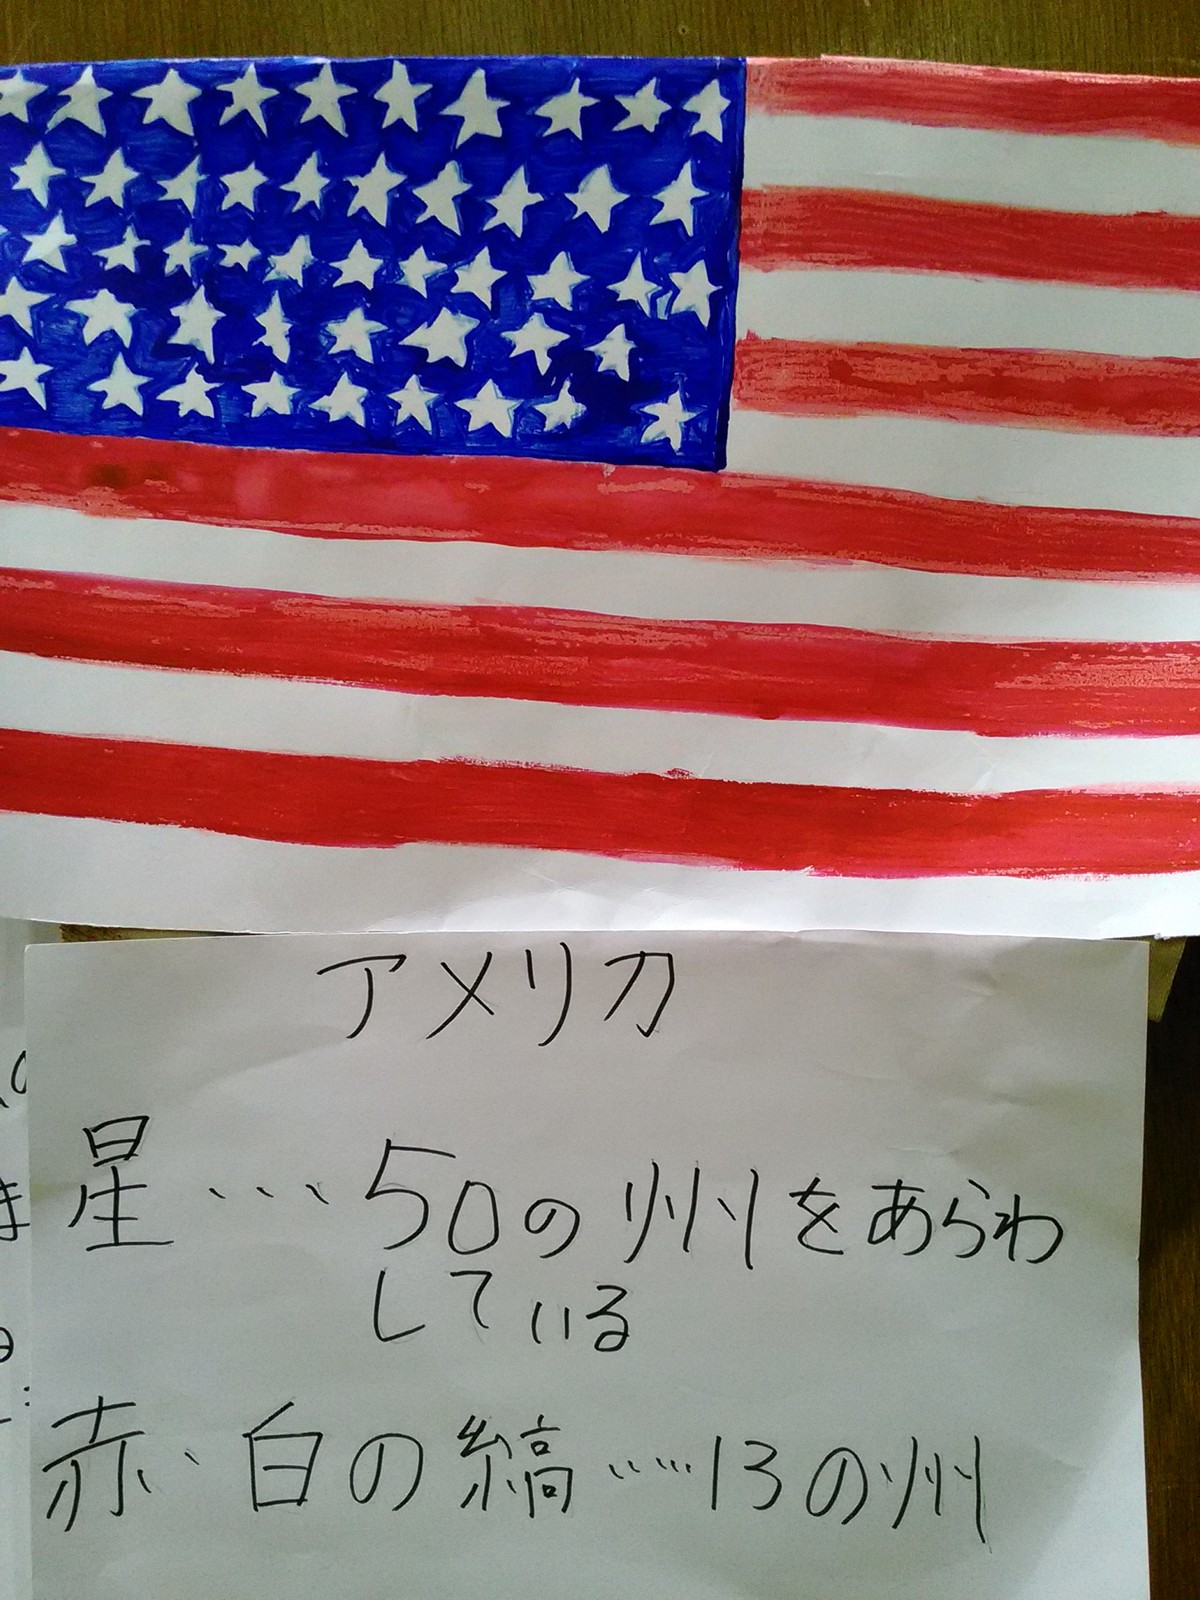 アメリカ
星・・・50の州をあらわ
している
赤、白の縞・・・・・13の州